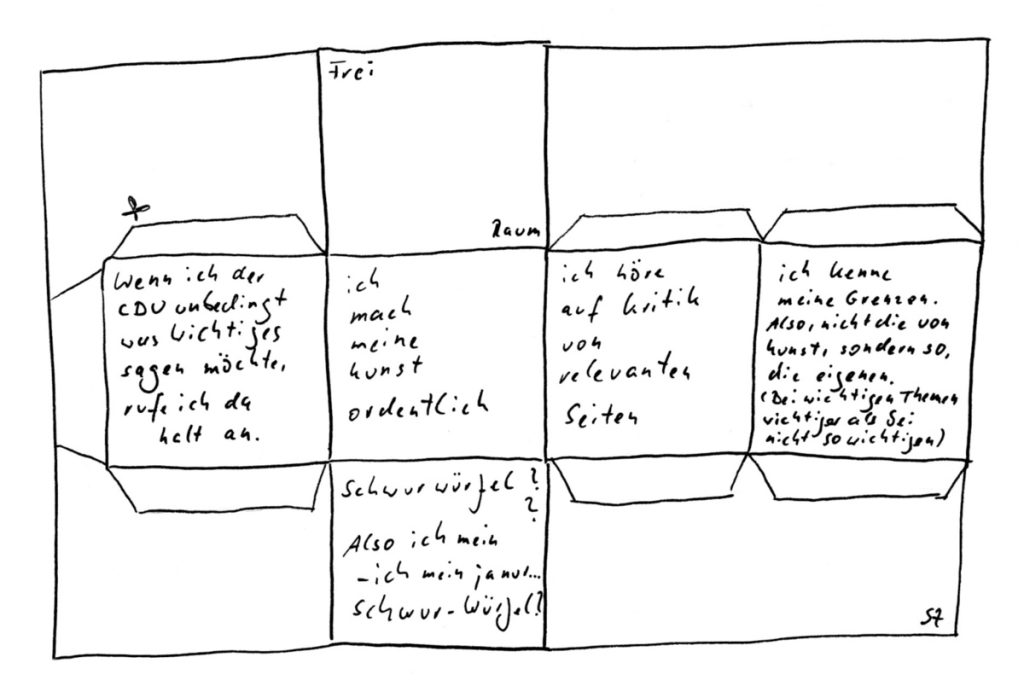 Frei
Raum
Wenn ich der
CDU unbedingt
was wichtiges
sagen möchte,
rufe ich da
halt an.
ich
mach
meine
kunst
ordentlich
ich höre
auf kritik
von
relevanten
Seiten
ich kenne
meine Grenzen.
Also, nicht die von
kunst, sondern so,
die eigenen.
(Bei wichtigen Themen
wichtiger als bei
nicht so wichtigen)
Schwurwürfel?
?
Also ich mein
-ich mein ja nur...
Schwur-Würfel?